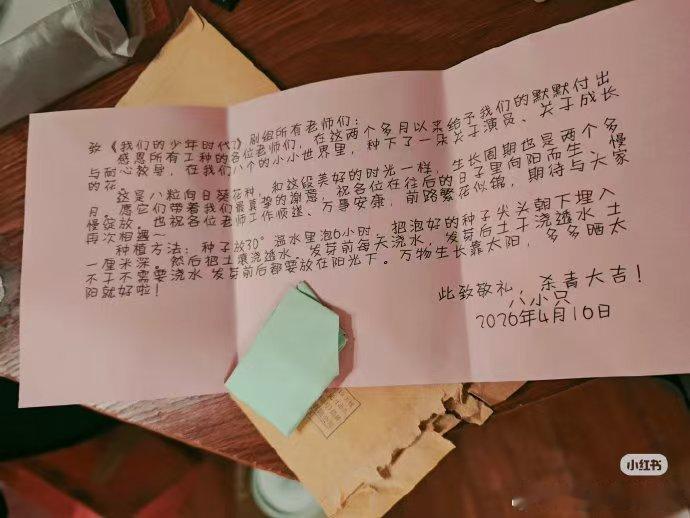 致《我们的少年时代2》剧组所有老师们：
感恩所有工种的各位老师们，在这两个多月以来给予我们的默默付出
与耐心教导，在我们八个的小小世界里，种下了一朵关于演员、关于成长
的花。
这是八粒向日葵花种，和这段美好的时光一样，生长周期也是两个多
月，愿它们带着我们最真挚的谢意，祝各位在往后的日子里向阳而生、慢
慢绽放。也祝各位老师工作顺遂、万事安康，前路繁花似锦，期待与大家
再次相遇～
种植方法：种子放30°温水里泡6小时，把泡好的种子尖头朝下埋入
一厘米深，然后把土壤浇透水。发芽前每天浇水，发芽后土干浇透水，土
不干不需要浇水，发芽前后都要放在阳光下。万物生长靠太阳，多多晒太
阳就好啦！
此致敬礼，杀青大吉！
八小只
2026年4月10日
小红书